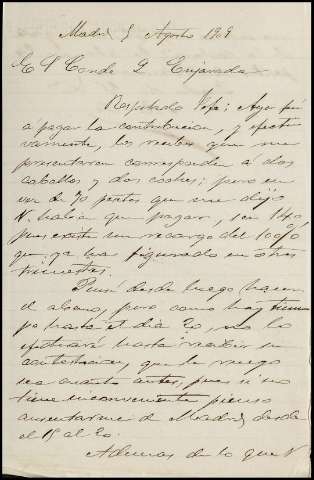 Madrid 5 Agosto 1909
E S Conde D
Respetado Jefe: Ayer fui
a pagar la contribucion, y efecti
vamente, los recibos que me
presentaron corresponden a dos
caballos y dos coches; pero en
vez de 70 pesetas que me dijo
V. habia que pagar, son 140,
pues existe un recargo del 100%
que ya ha figurado en otros
trimestres.
Pensé desde luego hacer
el abono, pero como hay tiem
po hasta el dia 20, no lo
efectuaré hasta recibir su
contestacion, que le ruego
sea cuanto antes, pues si no
tiene inconveniente pienso
ausentarme de Madrid desde
el 15 al 20.
Ademas de lo que V